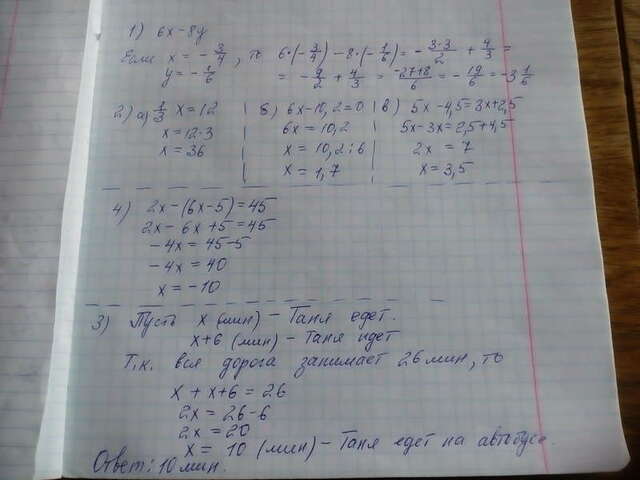 1) 6x-8y
Если x = -3/4, то 6·(-3/4)-8·(-1/6) = -3·3/2 + 4/3 =
y = -1/6
= -9/2 + 4/3 = -27+8/6 = -19/6 = -3 1/6
2) а) 1/3 x = 12
x = 12·3
x = 36
б) 6x-10,2=0
6x = 10,2
x = 10,2:6
x = 1,7
в) 5x-4,5=3x+2,5
5x-3x=2,5+4,5
2x = 7
x = 3,5
4) 2x-(6x-5)=45
2x-6x+5=45
-4x = 45-5
-4x = 40
x = -10
3) Пусть x (мин) - Таня едет.
x+6 (мин) - Таня идет
Т.к. вся дорога занимает 26 мин, то
x + x+6 = 26
2x = 26-6
2x = 20
x = 10 (мин) - Таня едет на автобусе.
Ответ: 10 мин.